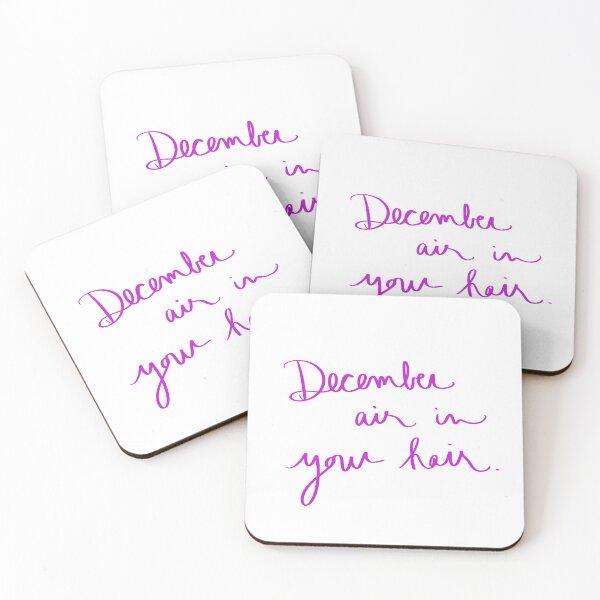 December
in
December
air in
your hair.
December
air in
your
December
air in
your hair.